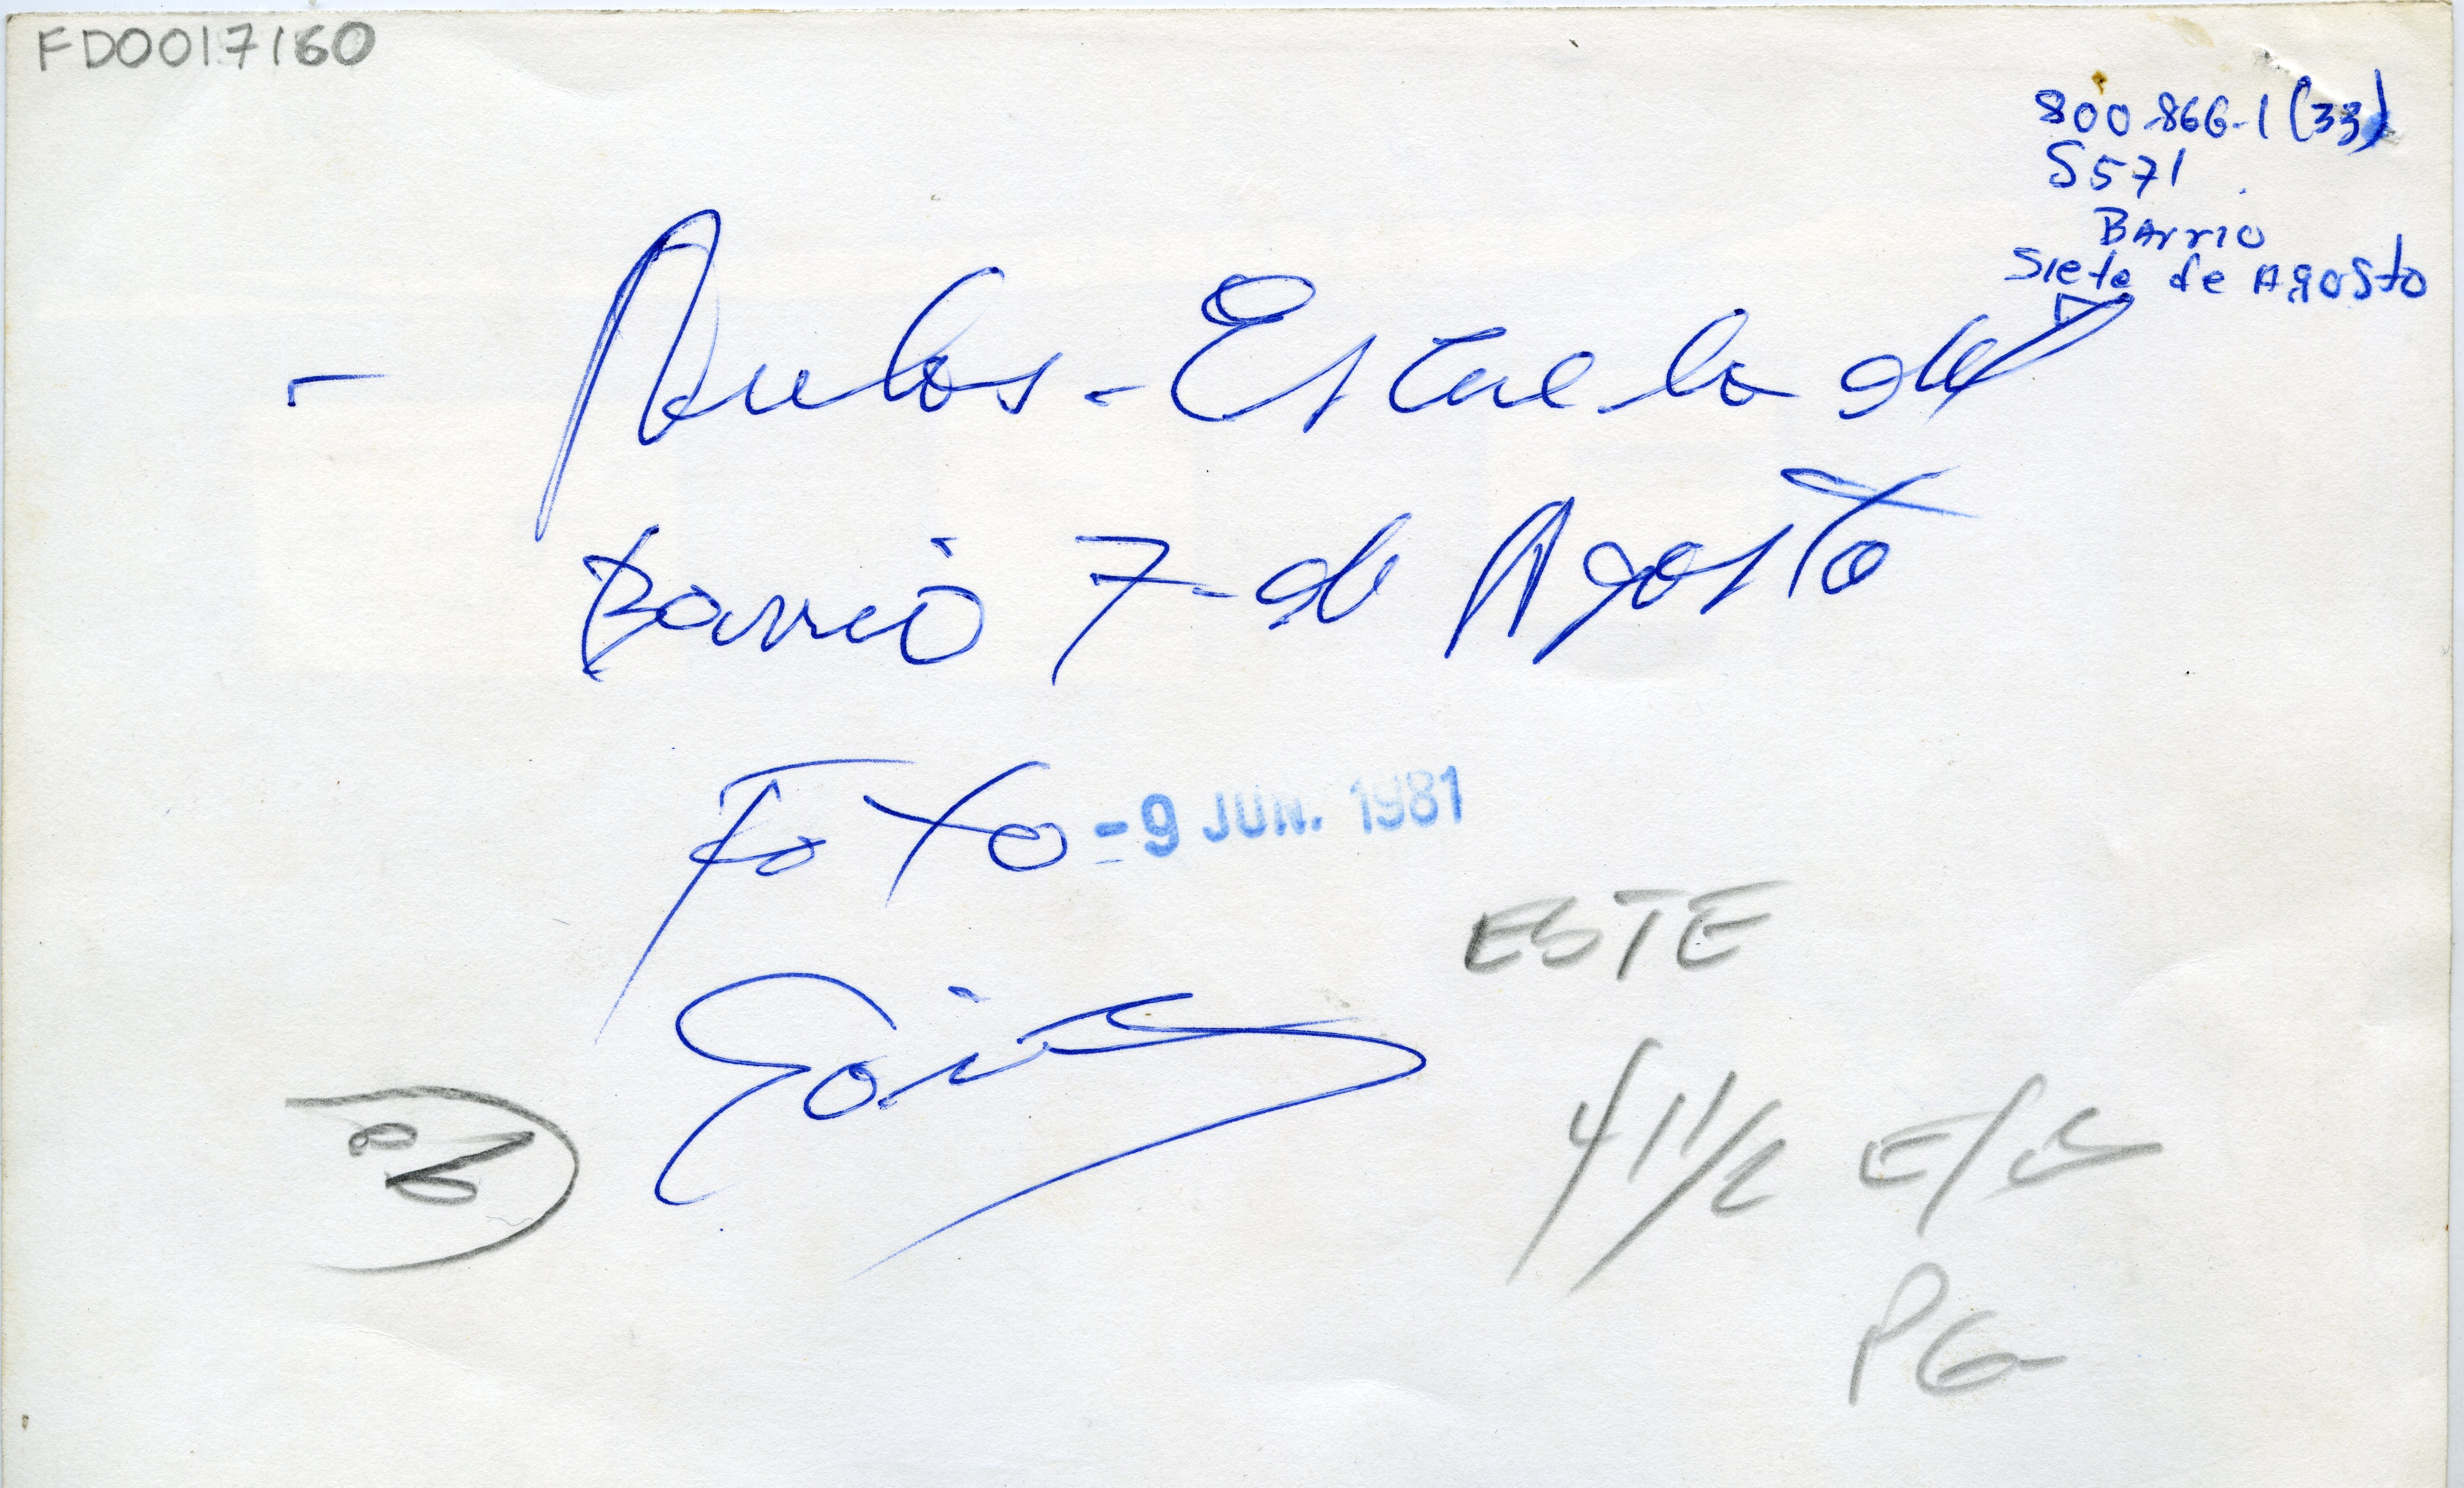 FD0017160
800-866-1 (33)
S571
BArrio
Siete de Agosto
- Aulas - Escuela del
Barrio 7 - de Agosto
Foto - 9 JUN. 1981
ESTE
41 1/2
PG